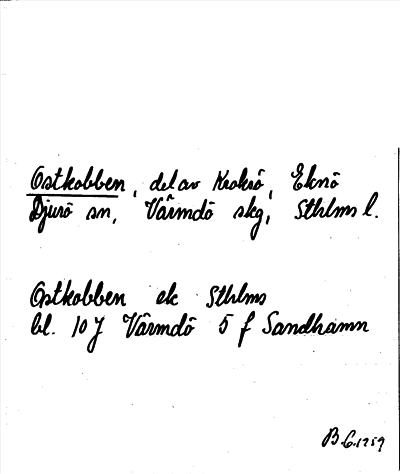 Ostkobben, del av Krokö, Eknö
Djurö sn, Värmdö skg, Sthlms l.
Ostkobben ek Sthlms
bl. 10 J Värmdö 5 f Sandhamn